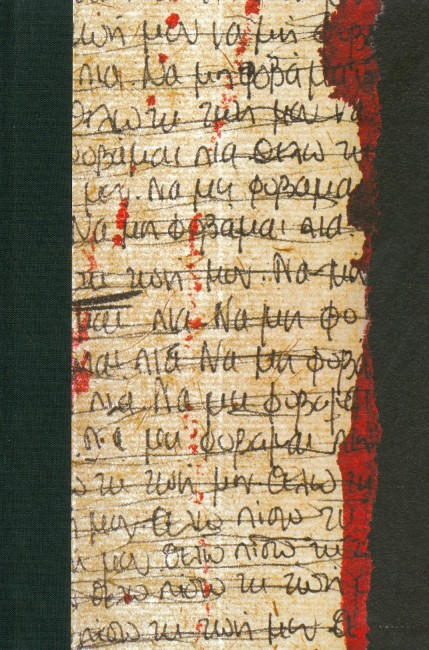 ζωή μου να μη φοβά
πια. Να μη φοβάμαι
Θέλω τη ζωή μου να
φοβαμαι πια Θελω τη
μου. Να μη φοβαμα
Να μη φοβαμαι πια.
τη ζωή μου. Να μη
μαι πια. Να μη φο
μαι πια Να μη φοβά
πια. Να μη φοβαμαι
πια μη φοβαμαι πια
ω τη ζωη μου Θελω τη
μου Θελω πισω τη
η μου Θελω πισω τη
Θελω πισω τη ζωη
πισω τη ζωη μου Θε